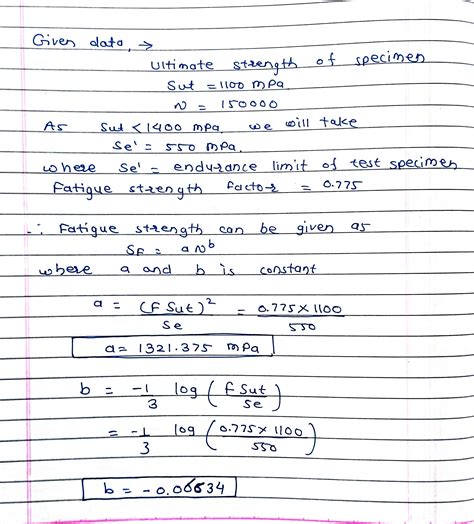 Given data, →
Ultimate strength of specimen
Sut = 1100 mPa
N = 150000
As Sut < 1400 mPa, we will take
Se' = 550 mPa.
where Se' = endurance limit of test specimen
Fatigue strength factor = 0.775
∴ Fatigue strength can be given as
SF = aN^b
where a and b is constant
a = (F Sut)² / Se = 0.775 × 1100 / 550
a = 1321.375 mPa
b = -1/3 log (F Sut / Se)
= -1/3 log (0.775 × 1100 / 550)
b = -0.06634